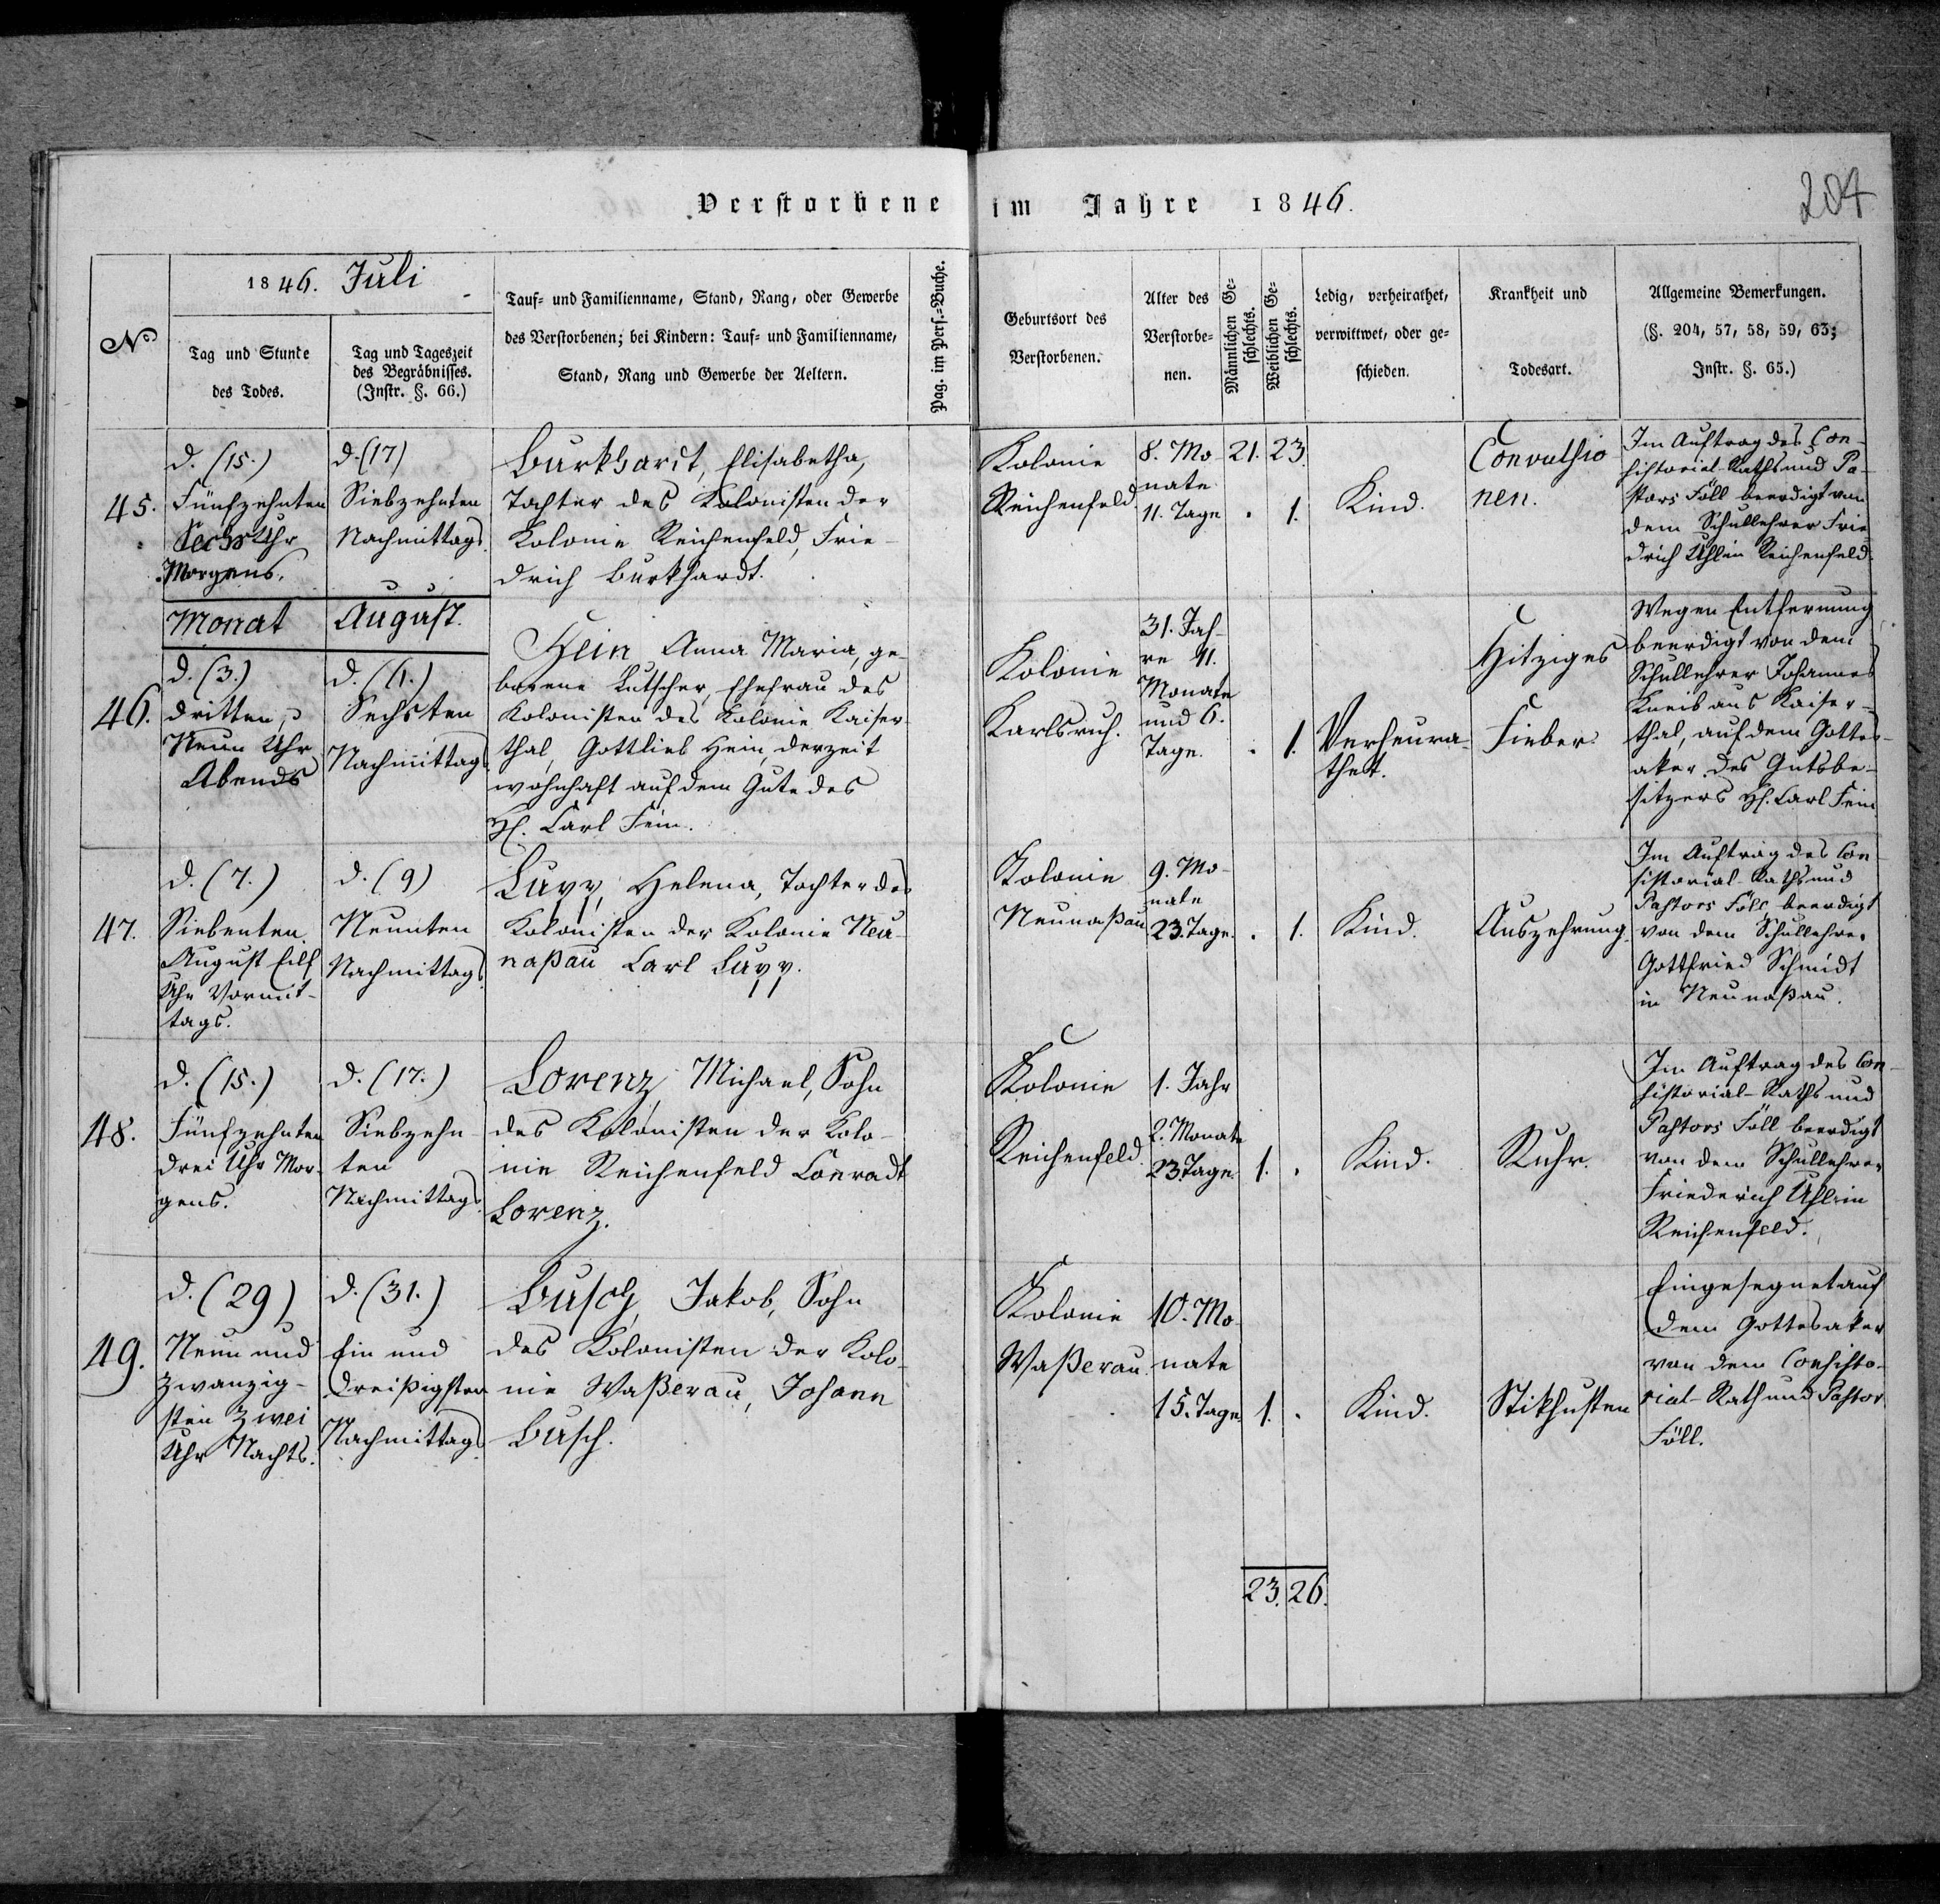 Verstorbene im Jahre 1846.
204
No
1846. Juli
Tag und Stunde
des Todes.
Tag und Tageszeit
des Begräbnisses.
(Instr. §. 66.)
Tauf- und Familienname, Stand, Rang, oder Gewerbe
des Verstorbenen; bei Kindern: Tauf- und Familienname,
Stand, Rang und Gewerbe der Aeltern.
Pag. im Pers.-Buche.
Geburtsort des
Verstorbenen.
Alter des
Verstorbe-
nen.
Männlichen Ge-
schlechts.
Weiblichen Ge-
schlechts.
Ledig, verheirathet,
verwittwet, oder ge-
schieden.
Krankheit und
Todesart.
Allgemeine Bemerkungen.
(§. 204, 57, 58, 59, 63;
Instr. §. 65.)
45.
d. (15.)
Fünfzehnten
Sechs Uhr
Morgens.
d. (17)
Siebzehnten
Nachmittags.
Burkhardt, Elisabetha,
Tochter des Kolonisten der
Kolonie Reichenfeld, Frie-
drich Burkhardt.
Kolonie
Reichenfeld.
8. Mo-
nate
11. Tage
21. 23.
. 1.
Kind.
Convulsio
nen.
Im Auftrag des Con-
sistorial-Raths und Pa-
stors Föll beerdigt von
dem Schullehrer Frie-
drich Uhl in Reichenfeld.
Monat August.
46.
d. (3.)
dritten,
Neun Uhr
Abends
d. (6.)
Sechsten
Nachmittags
Hein Anna Maria, ge-
borene Lutscher, Ehefrau des
Kolonisten des Kolonie Kaiser-
thal, Gottlieb Hein, derzeit
wohnhaft auf dem Gute des
H. Carl Fein.
Kolonie
Karlsruh.
31. Jah-
re 11.
Monate
und 6.
Tage.
. 1.
Verheura-
thet.
Hitziges
Fieber.
Wegen Entfernung
beerdigt von dem
Schullehrer Johannes
Kneib aus Kaiser-
thal, auf dem Gottes-
aker des Gutsbe-
sitzers H. Carl Fein
47.
d. (7.)
Siebenten
August Eilf
Uhr Vormit-
tags.
d. (9)
Neunten
Nachmittags.
Lupp, Helena, Tochter des
Kolonisten der Kolonie Neu-
naßau Carl Lupp.
Kolonie
Neunaßau
9. Mo-
nate
23. Tage.
. 1.
Kind.
Auszehrung.
Im Auftrag des Con-
sistorial-Raths und
Pastors Föll beerdigt
von dem Schullehrer
Gottfried Schmidt
in Neunaßau.
48.
d. (15.)
Fünfzehnten
drei Uhr Mor-
gens.
d. (17.)
Siebzehn-
ten
Nachmittags.
Lorenz, Michael, Sohn
des Kolonisten der Kolo-
nie Reichenfeld Conradt
Lorenz.
Kolonie
Reichenfeld.
1. Jahr
2. Monate
23. Tage.
1. .
Kind.
Ruhr.
Im Auftrag des Con-
sistorial-Raths und
Pastors Föll beerdigt
von dem Schullehrer
Friederich Uhl in
Reichenfeld.
49.
d. (29)
Neun und
zwanzig-
sten Zwei
Uhr Nachts.
d. (31.)
Ein und
dreißigsten
Nachmittags.
Busch, Jakob, Sohn
des Kolonisten der Kolo-
nie Waßerau, Johann
Busch.
Kolonie
Waßerau.
10. Mo-
nate
15. Tage
1. .
Kind.
Stikhusten
Eingesegnet auf
dem Gottesaker
von dem Consisto-
rial-Rath und Pastor
Föll.
23. 26.